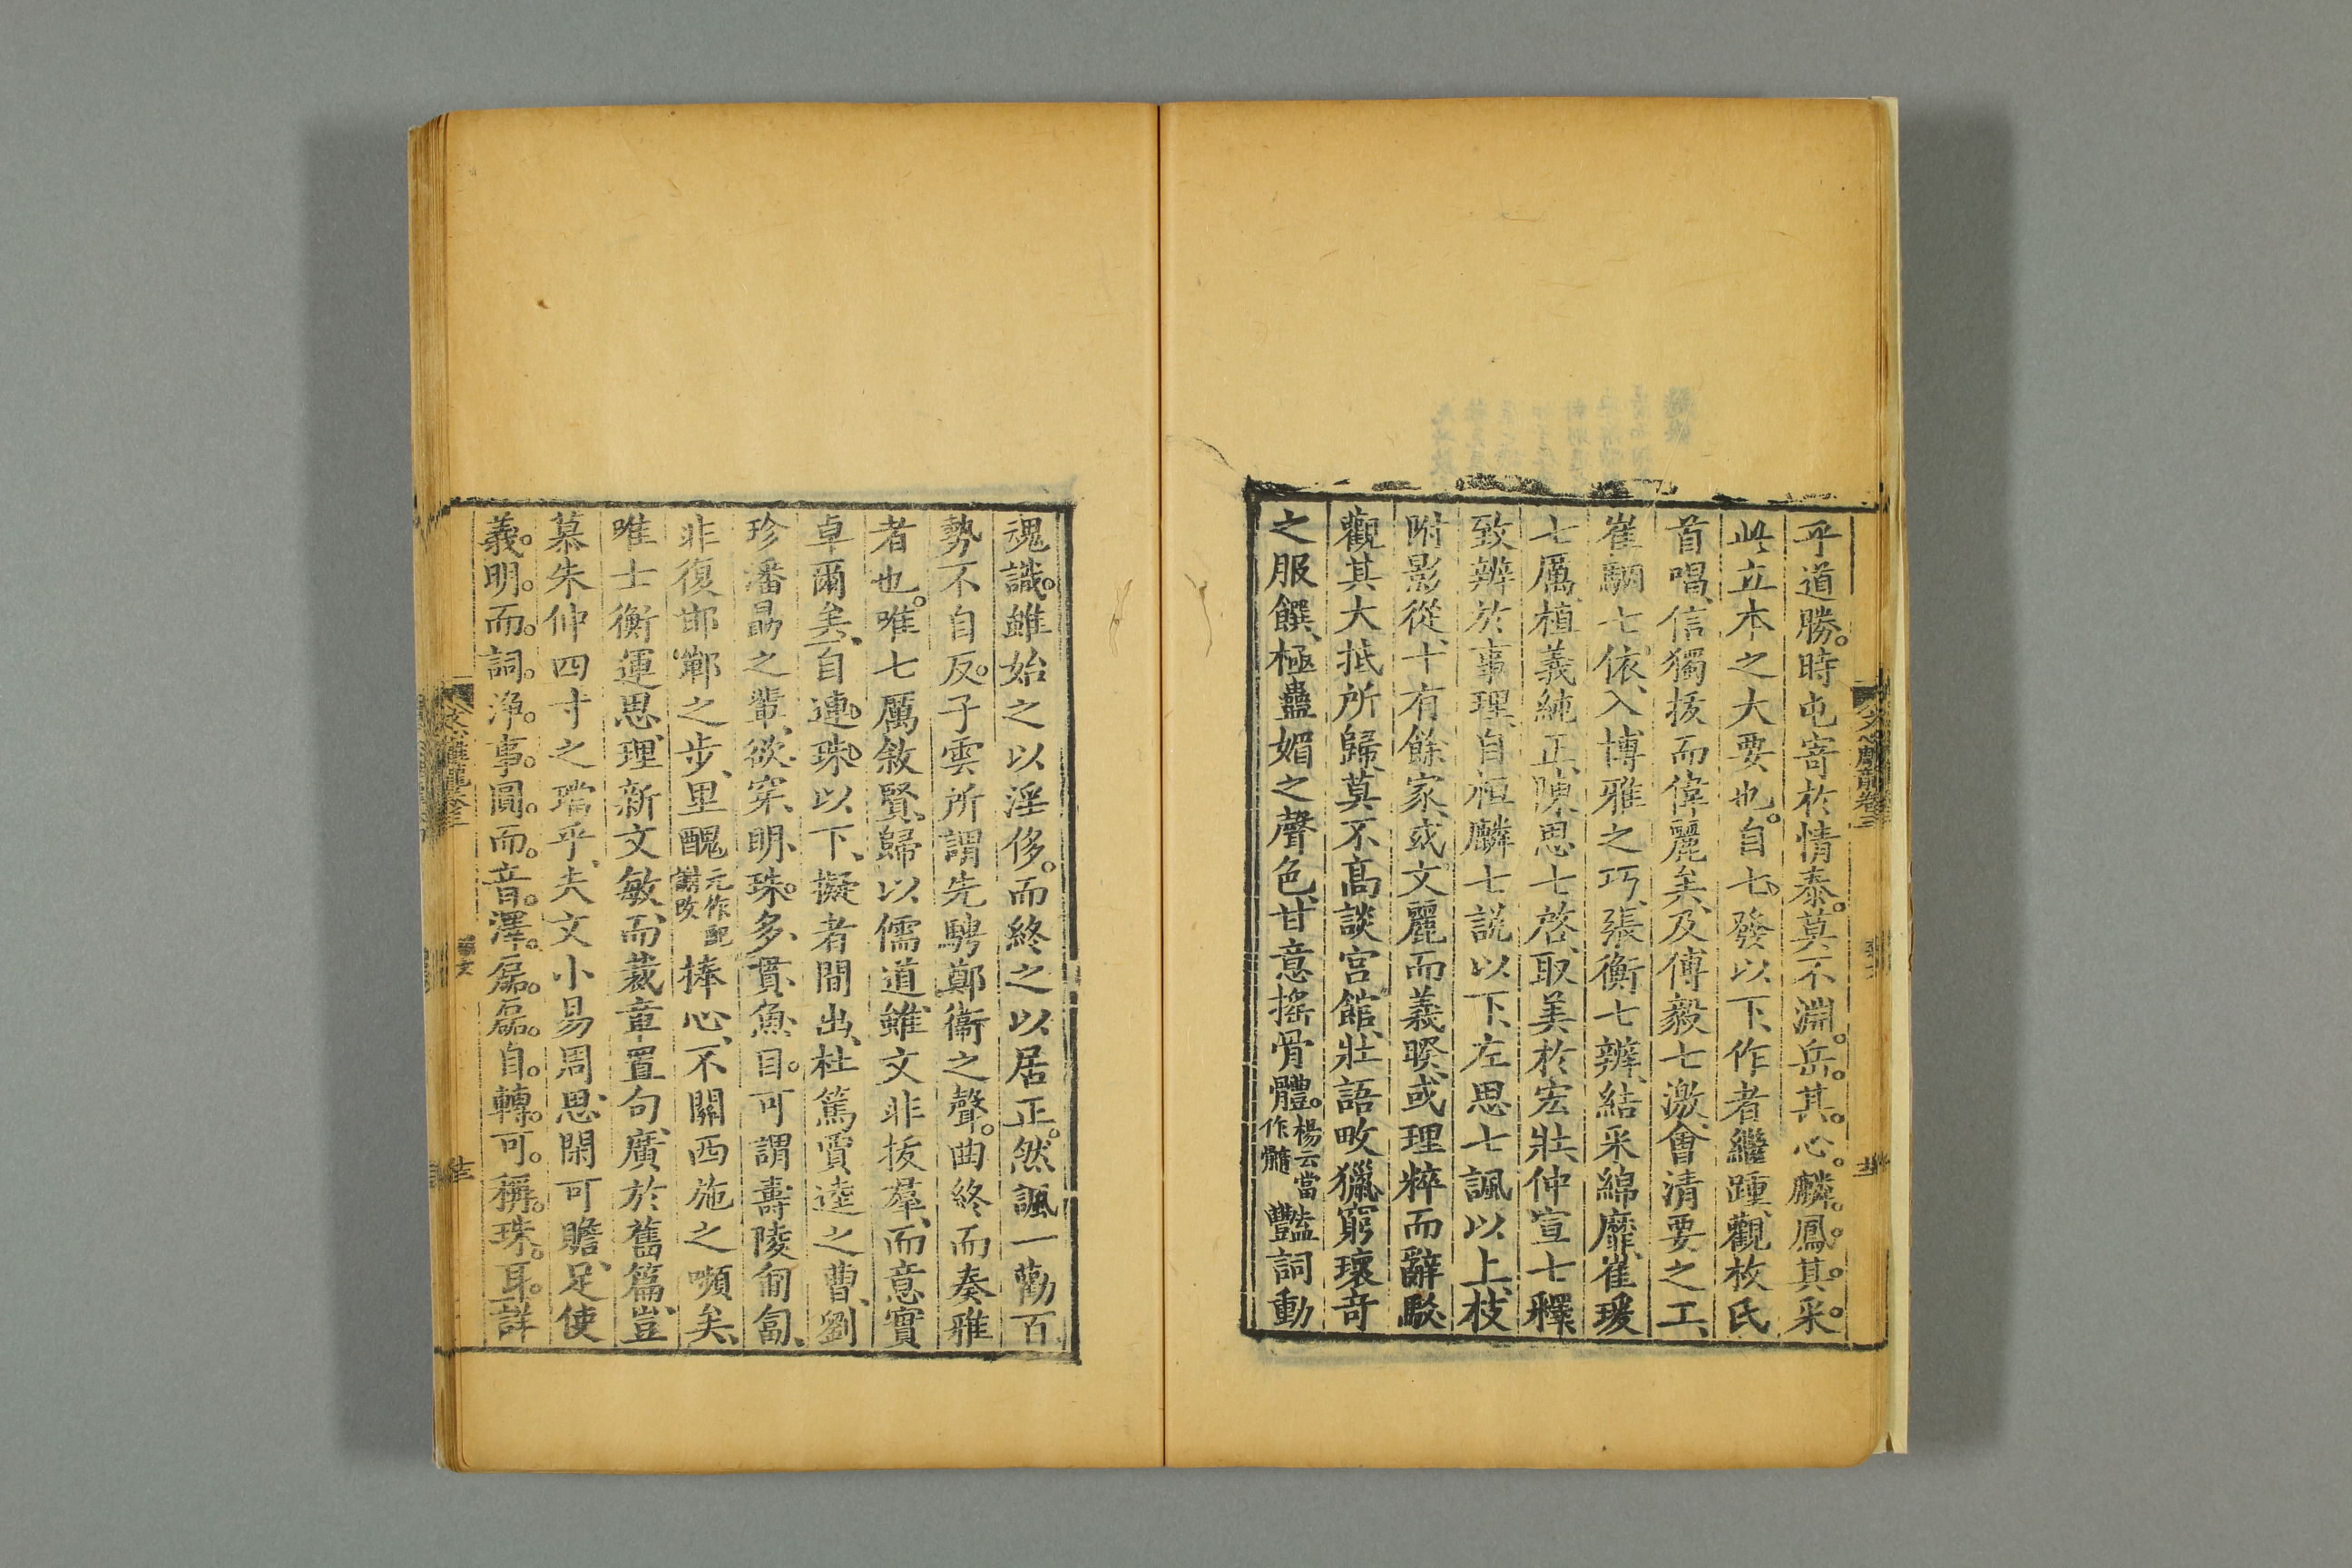 乎道勝。時屯寄於情泰。莫不淵。岳。其。心。麟。鳳。其。采。
此立本之大要也。自七發以下、作者繼踵、觀枚氏
首唱、信獨拔而偉麗矣、及傅毅七激、會清要之工、
崔駰七依、入博雅之巧、張衡七辨、結采綿靡、崔瑗
七厲、植義純正、陳思七啓、取美於宏壯、仲宣七釋、
致辨於事理、自桓麟七說以下、左思七諷以上、枝
附影從、十有餘家、或文麗而義暌、或理粹而辭駁、
觀其大抵所歸、莫不高談宮館、壯語畋獵、窮瓌奇
之服饌、極蠱媚之聲色、甘意搖骨體。楊云當作髓豔詞動
魂識。雖始之以淫侈。而終之以居正。然諷一勸百
勢不自反。子雲所謂先騁鄭衞之聲。曲終而奏雅
者也。唯七厲敘賢、歸以儒道、雖文非拔羣、而意實
卓爾矣、自連。珠。以下、擬者間出、杜篤賈逵之曹、劉
珍潘勗之輩、欲穿、明、珠。多、貫、魚、目。可謂壽陵匍匐、
非復邯鄲之步、里醜元作配謝改捧心、不關西施之嚬矣、
唯士衡運思、理新文敏、而裁章置句、廣於舊篇、豈
慕朱仲四寸之璫乎、夫文小易周、思閑可贍、足使
義。明。而。詞。淨。事。圓。而。音。澤。磊。磊。自。轉。可。稱。珠。耳。詳
文心雕龍卷三
雜文
文心雕龍卷三